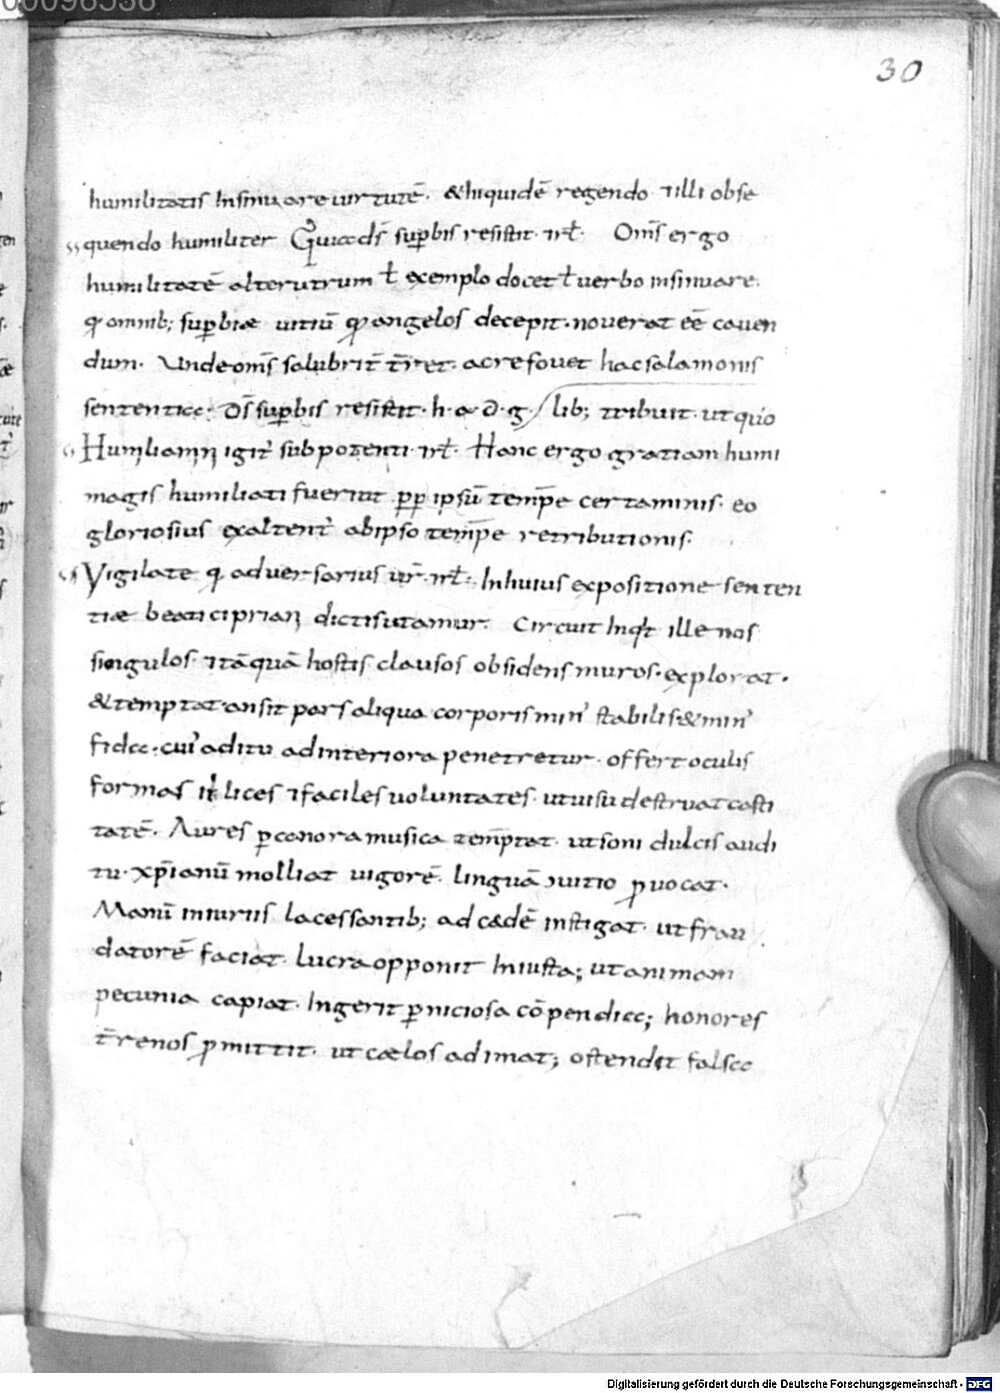 00096536
30
humilitatis Insinuare uirtutē. & hi quidē regendo ⁊illi obse
quendo humiliter Quia ds̄ suꝑbis resistit· Oms̄ ergo
humilitatē alterutrum ł exemplo docet ł uerbo insinuare.
omnib; suꝑbiae uitiū angelos decepit· nouerat eē cauen
dum. Unde oms̄ salubrit̄ t̄ret· ac refouet hac salamonis
sententia· Ds̄ suꝑbis resistit· h· a· d· g· / lib; tribuit· ut quo
Humiliamini igit᷒ sub potenti· Hanc ergo gratiam humi
magis humiliati fuerint ipsū temp̄e certaminis· eo
gloriosius exaltent᷒ ab ipso temp̄e retributionis.
Vigilate aduersarius ur̄· In huius expositione senten
tiae beati cipriani dictis utamur. Circuit Inqt ille nos
singulos· ⁊tāquā hostis clausos obsidens muros· explorat·
& temptat an sit pars aliqua corporis min᷒ stabilis & min᷒
fida· cui᷒ aditu ad interiora penetretur· offert oculis
formas illices ⁊faciles uoluntates· ut uisu destruat casti
tatē. Aures ꝑ canora musica temp̄tat· ut soni dulcis audi
tu· xp̄ianū molliat uigorē. linguā ɔuitio ꝓuocat·
Manū iniuriis lacessantib; ad cædē instigat· ut frau
datorē faciat· lucra opponit Iniusta; ut animam
pecunia capiat· Ingerit ꝑniciosa cōpendia; honores
t̄renos ꝓmittit· ut cælos adimat; ostendit falsa
Digitalisierung gefördert durch die Deutsche Forschungsgemeinschaft - DFG